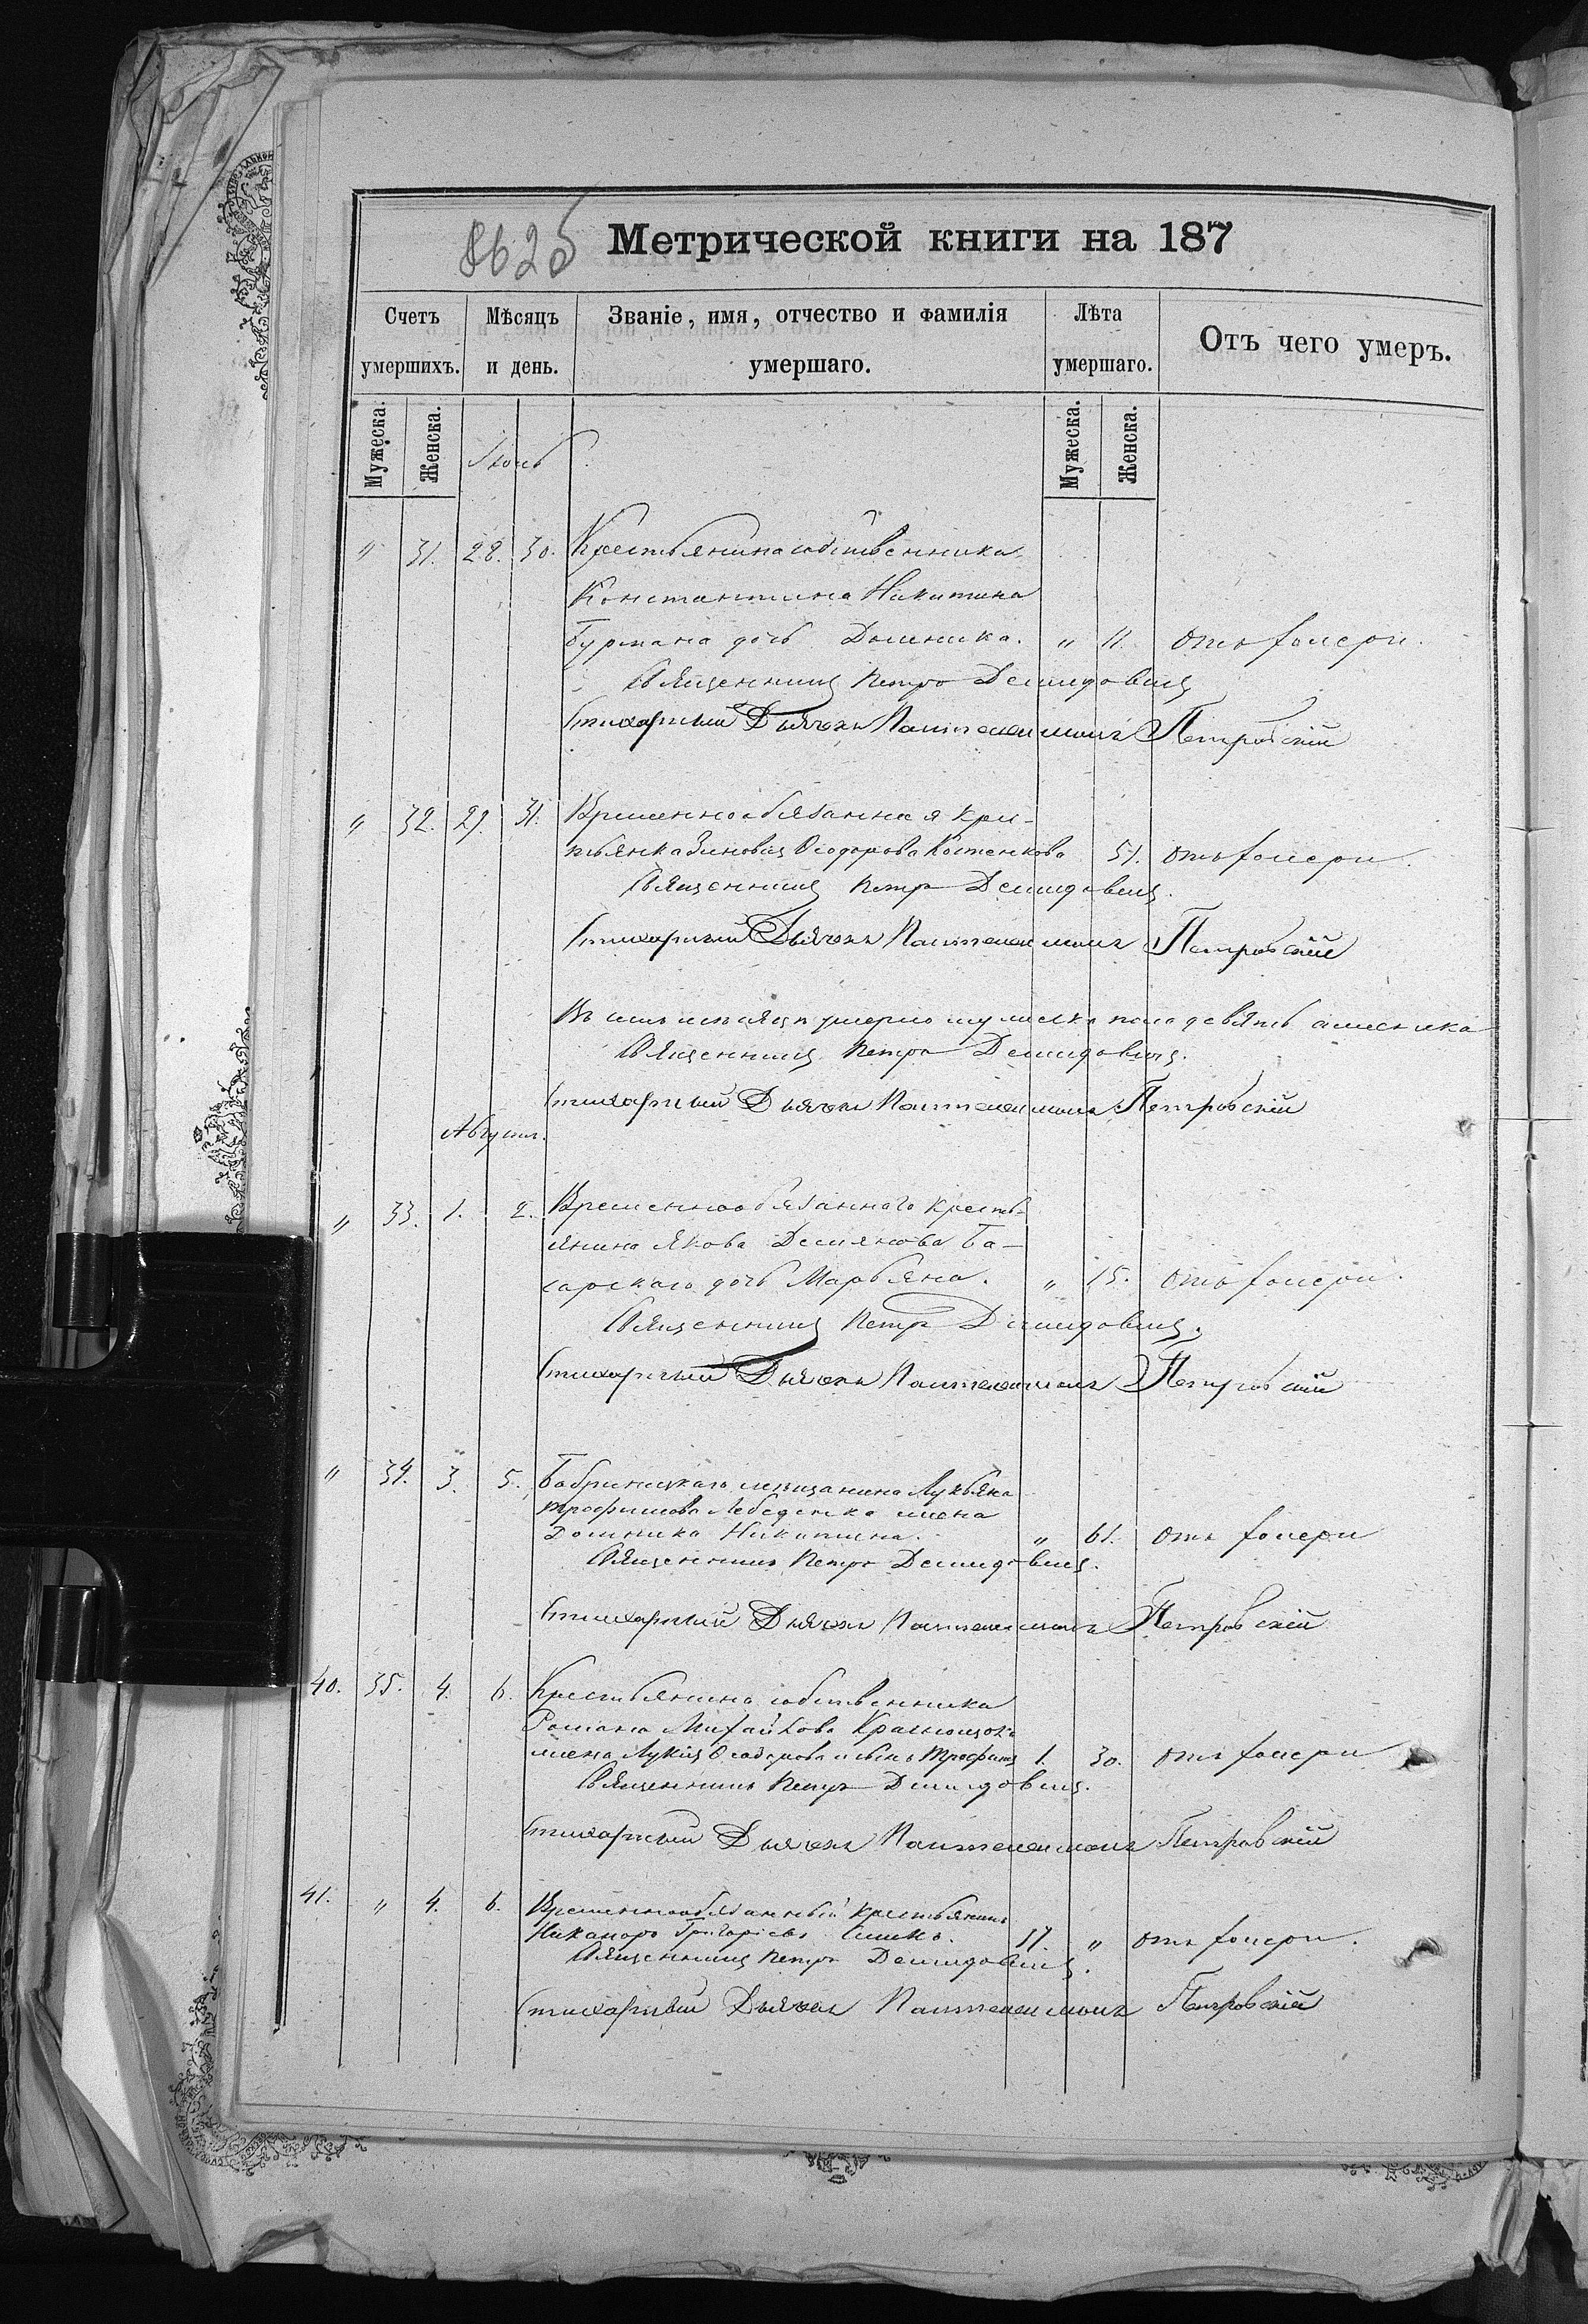 862б Метрической книги на 187
Счетъ умершихъ. Мѣсяцъ и день. Званіе, имя, отчество и фамилія умершаго. Лѣта умершаго. Отъ чего умеръ.
Мужеска. Женска. Мужеска. Женска.
" 31. 28. 30. Крестьянина собственника
Константина Никитина
дочь Домника. " 11. отъ холеры.
Священникъ Петръ Демидовичъ
Стихарный Дьячокъ Пантелеимонъ Петровскій
" 32. 29. 31. Временнообязанная крес-
тьянка Зиновія Ѳеодорова Костенкова 51. отъ холеры.
Священникъ Петръ Демидовичъ.
Стихарный Дьячокъ Пантелеимонъ Петровскій
Въ семъ мѣсяцѣ умерло мужеска пола девять а женска
Священникъ Петръ Демидовичъ.
Стихарный Дьячокъ Пантелеимонъ Петровскій
Августъ.
" 33. 1. 2. Временнообязаннаго кресть-
янина Якова Демянова Ба-
дочь Марьяна. " 15. отъ холеры.
Священникъ Петръ Демидовичъ.
Стихарный Дьячокъ Пантелеимонъ Петровскій
" 34. 3. 5. Бобринецкаго мещанина Лукьяна
Трофимова жена
Домника Никитина. " 61. отъ холеры
Священникъ Петръ Демидовичъ.
Стихарный Дьячокъ Пантелеимонъ Петровскій
40. 35. 4. 6. Крестьянина собственника
Романа Михайлова
жена Лукія Ѳеодорова и сынъ Трофимъ 1. 30. отъ холеры
Священникъ Петръ Демидовичъ.
Стихарный Дьячокъ Пантелеимонъ Петровскій
41. " 4. 6. Временнообязанный крестьянинъ
Никаноръ Григорьевъ " отъ холеры.
Священникъ Петръ Демидовичъ.
Стихарный Дьячокъ Пантелеимонъ Петровскій